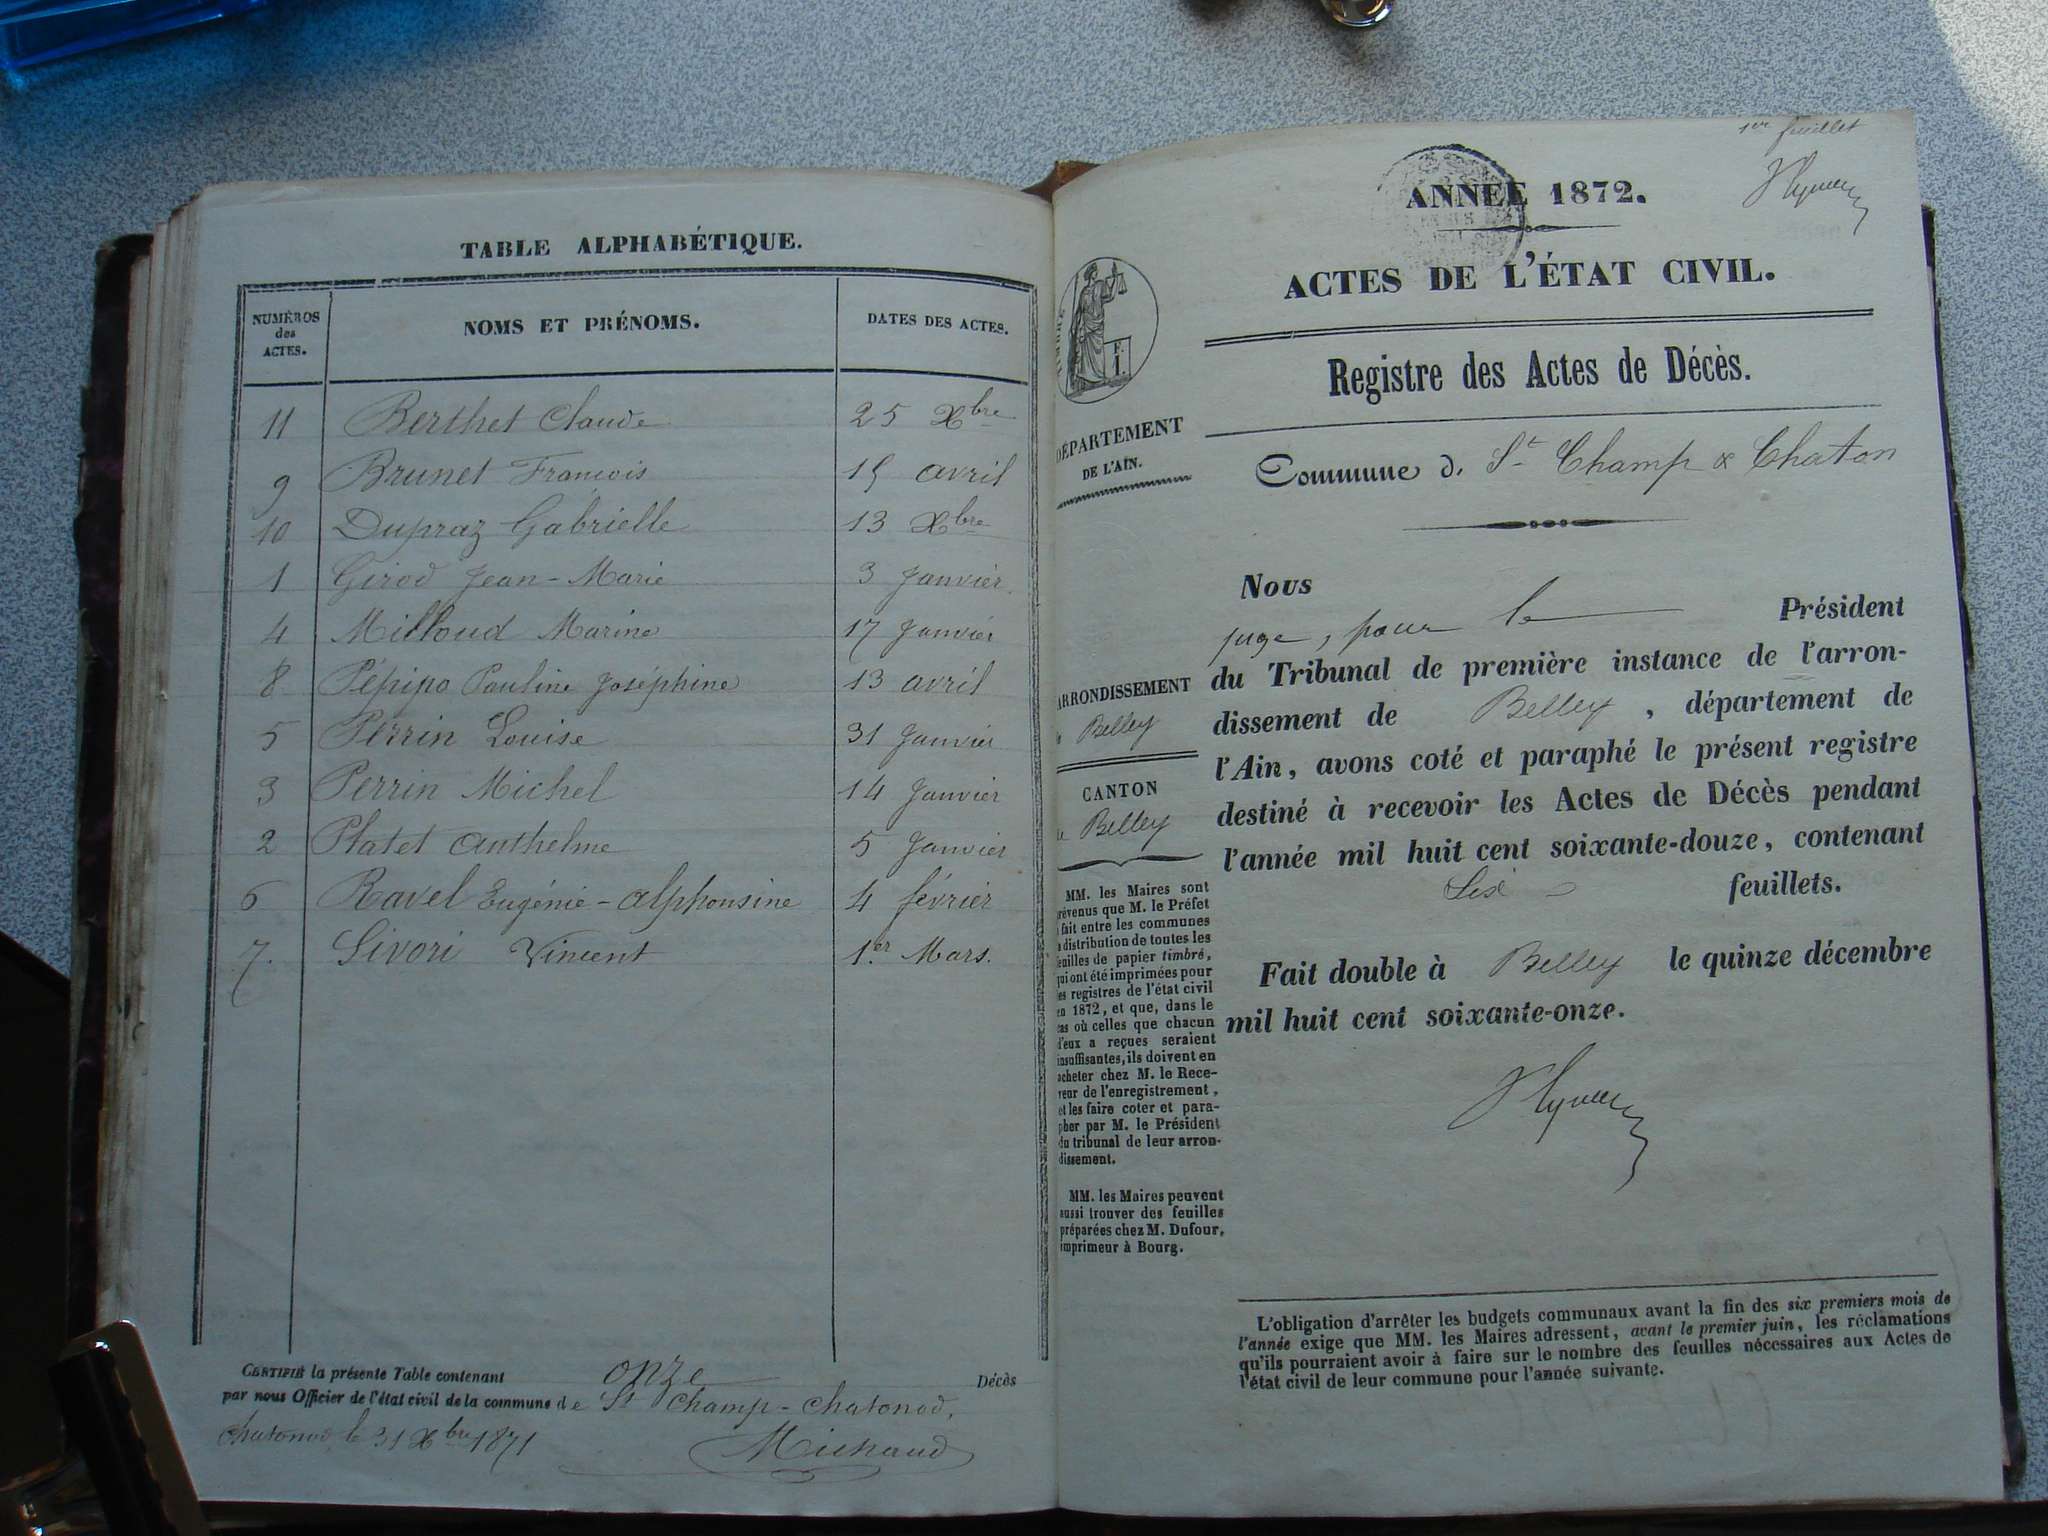 TABLE ALPHABÉTIQUE.
NUMÉROS des ACTES. NOMS ET PRÉNOMS. DATES DES ACTES.
11 Berthet Claude 25 Xbre
9 Brunet François 15 avril
10 Dupraz Gabrielle 13 Xbre
1 Girod Jean-Marie 3 Janvier
4 Milloud Marine 17 Janvier
8 Pépipo Pauline Joséphine 13 avril
5 Perrin Louise 31 Janvier
3 Perrin Michel 14 Janvier
2 Platet Anthelme 5 Janvier
6 Ravel Eugénie-Alphonsine 4 février
7. Sivori Vincent 1er Mars.
CERTIFIÉ la présente Table contenant onze Décès
par nous Officier de l'état civil de la commune de St Champ-Chatonod,
Chatonod le 31 Xbre 1871
Michaud
1er feuillet
ANNÉE 1872.
ACTES DE L'ÉTAT CIVIL.
Registre des Actes de Décès.
TIMBRE
DÉPARTEMENT
DE L'AIN.
Commune d. St Champ & Chaton
ARRONDISSEMENT
Belley
CANTON
Belley
MM. les Maires sont
prévenus que M. le Préfet
fait entre les communes
la distribution de toutes les
feuilles de papier timbré,
qui ont été imprimées pour
les registres de l'état civil
en 1872, et que, dans le
cas où celles que chacun
d'eux a reçues seraient
insuffisantes, ils doivent en
acheter chez M. le Rece-
veur de l'enregistrement,
et les faire coter et para-
pher par M. le Président
du tribunal de leur arron-
dissement.
MM. les Maires peuvent
aussi trouver des feuilles
préparées chez M. Dufour,
imprimeur à Bourg.
Nous
juge, pour le Président
du Tribunal de première instance de l'arron-
dissement de Belley, département de
l'Ain, avons coté et paraphé le présent registre
destiné à recevoir les Actes de Décès pendant
l'année mil huit cent soixante-douze, contenant
Six feuillets.
Fait double à Belley le quinze décembre
mil huit cent soixante-onze.
L'obligation d'arrêter les budgets communaux avant la fin des six premiers mois de
l'année exige que MM. les Maires adressent, avant le premier juin, les réclamations
qu'ils pourraient avoir à faire sur le nombre des feuilles nécessaires aux Actes de
l'état civil de leur commune pour l'année suivante.